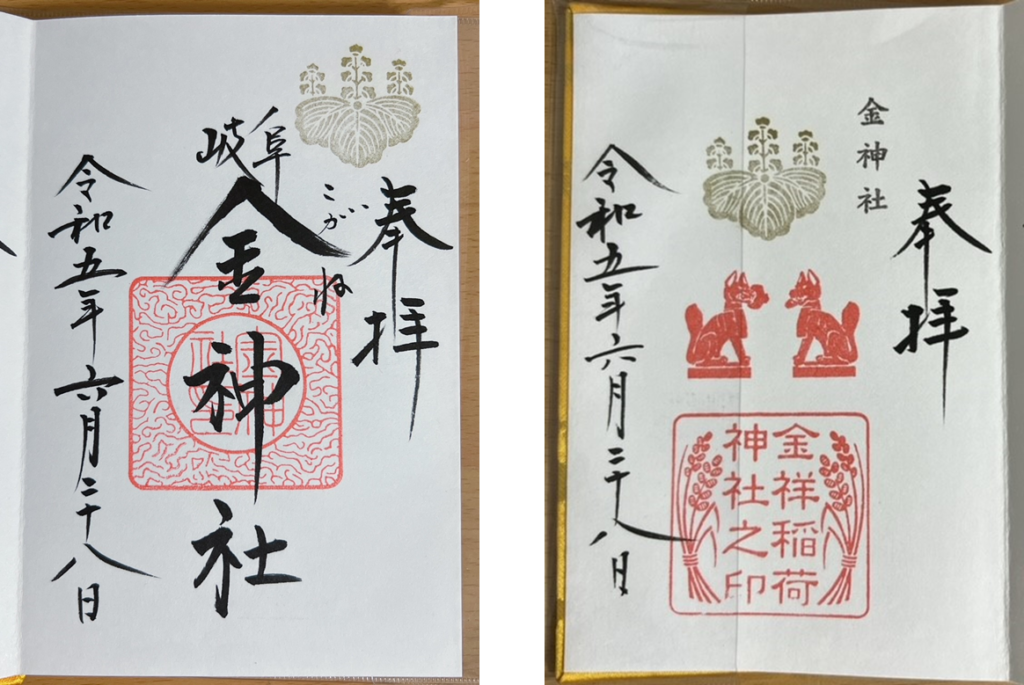 奉拝
岐阜
こがね
金神社
令和五年六月二十八日
金神社
奉拝
金祥稲荷
神社之印
令和五年六月二十八日